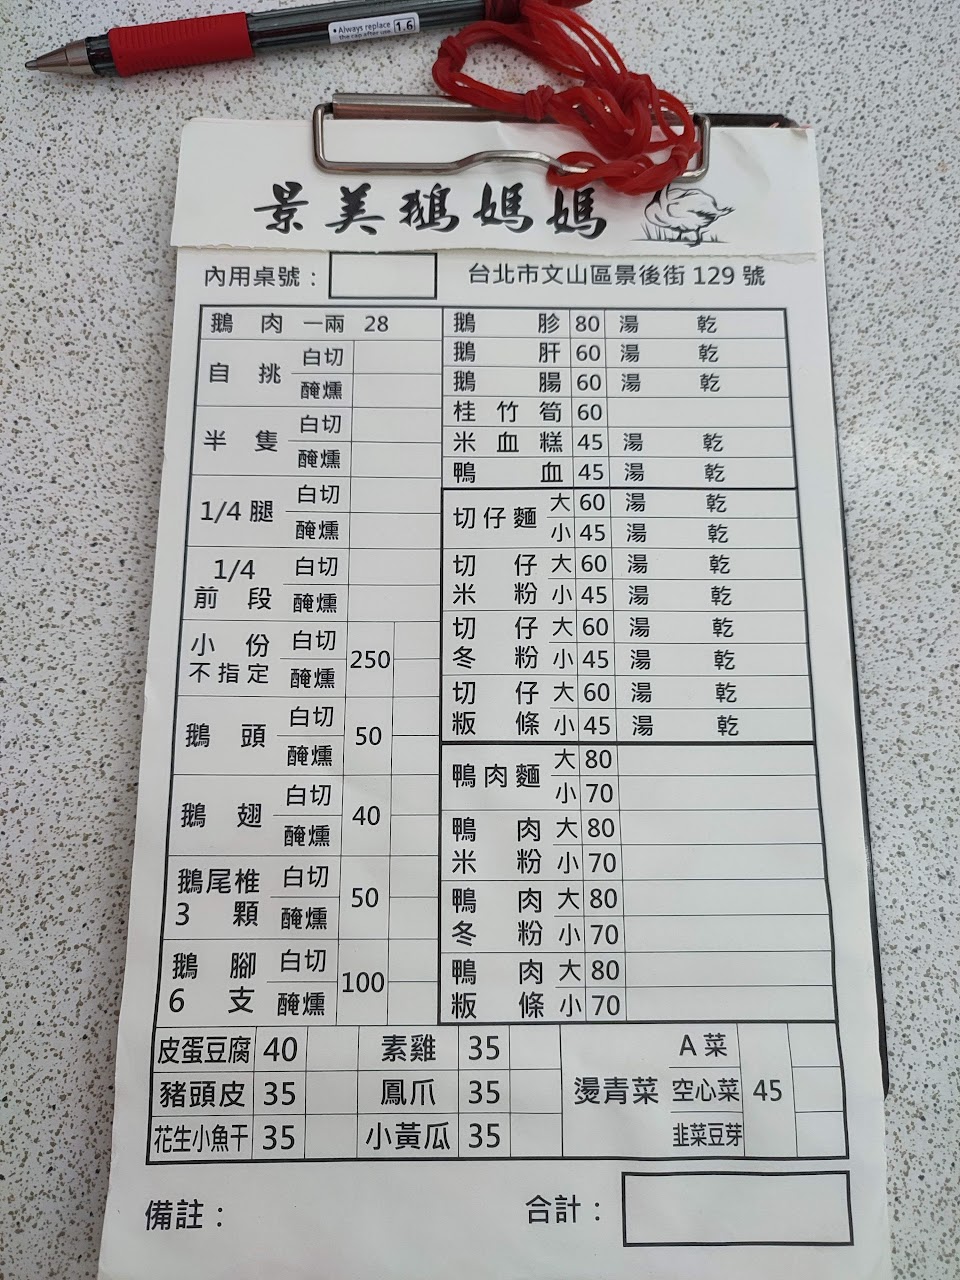 • Always replace
the cap after use.
1.6
景美鵝媽媽
內用桌號：
台北市文山區景後街129號
鵝肉 一兩 28
自挑 白切
醃燻
半隻 白切
醃燻
1/4腿 白切
醃燻
1/4前段 白切
醃燻
小份不指定 白切 250
醃燻
鵝頭 白切 50
醃燻
鵝翅 白切 40
醃燻
鵝尾椎3顆 白切 50
醃燻
鵝腳6支 白切 100
醃燻
鵝胗 80 湯 乾
鵝肝 60 湯 乾
鵝腸 60 湯 乾
桂竹筍 60
米血糕 45 湯 乾
鴨血 45 湯 乾
切仔麵 大 60 湯 乾
小 45 湯 乾
切仔 大 60 湯 乾
米粉 小 45 湯 乾
切仔 大 60 湯 乾
冬粉 小 45 湯 乾
切仔 大 60 湯 乾
粄條 小 45 湯 乾
鴨肉麵 大 80
小 70
鴨肉 大 80
米粉 小 70
鴨肉 大 80
冬粉 小 70
鴨肉 大 80
粄條 小 70
皮蛋豆腐 40 素雞 35
豬頭皮 35 鳳爪 35
花生小魚干 35 小黃瓜 35
燙青菜 A菜 45
空心菜
韭菜豆芽
備註：
合計：